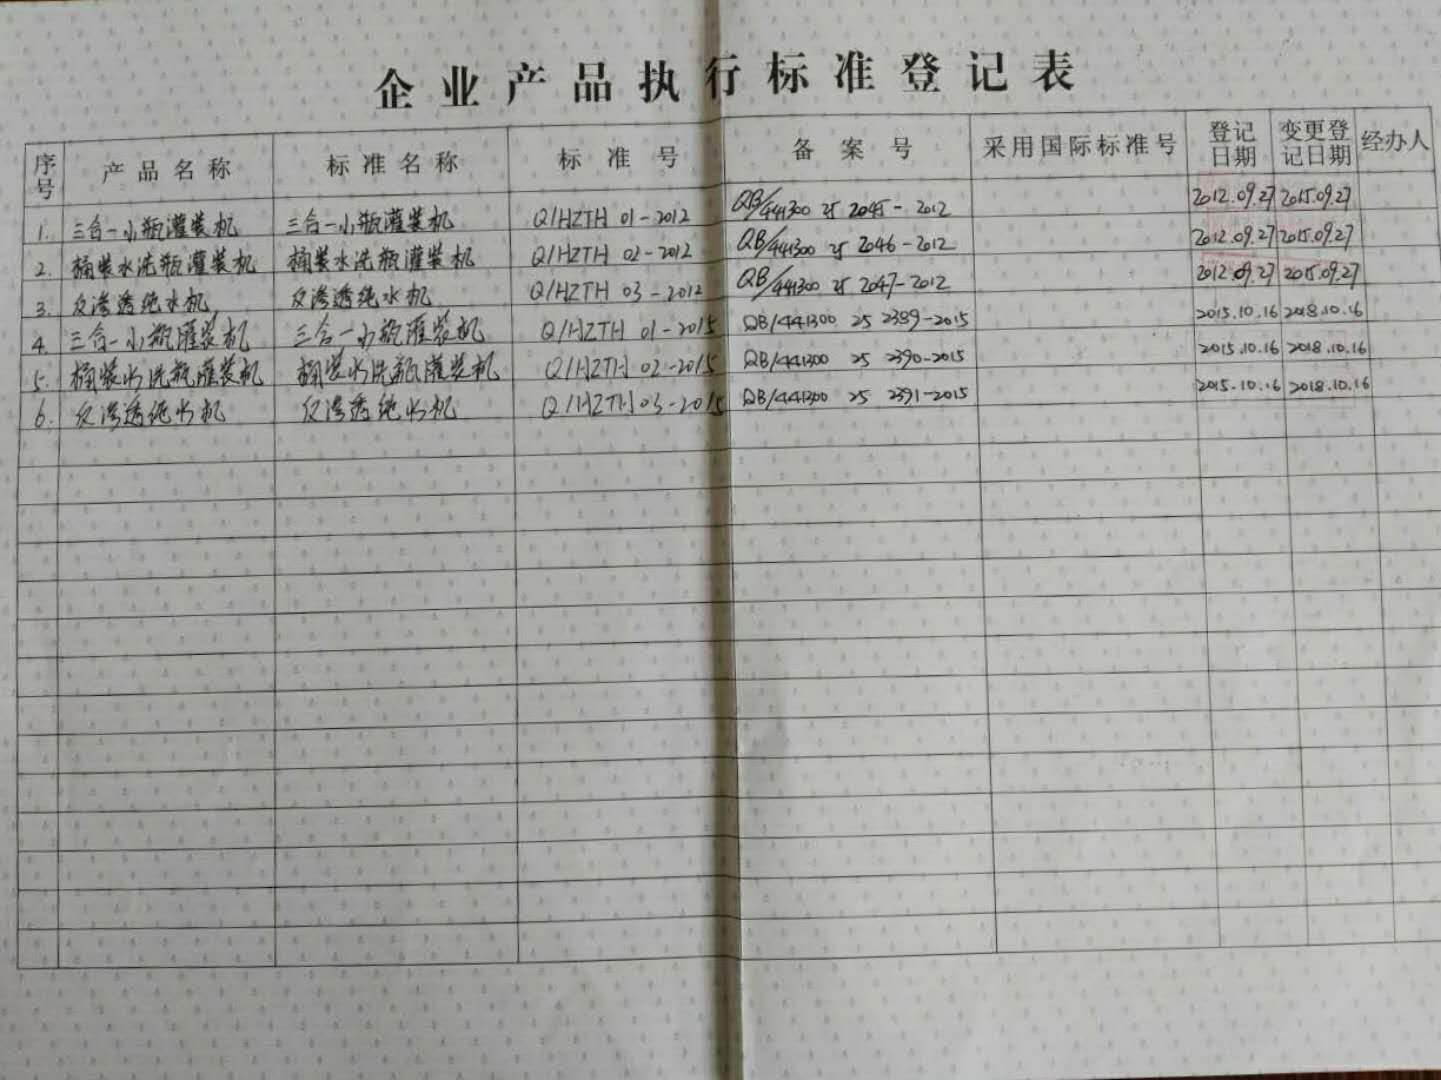 企业产品执行标准登记表
序号 产品名称 标准名称 标准号 备案号 采用国际标准号 登记日期 变更登记日期 经办人
1. 三合一小瓶灌装机 三合一小瓶灌装机 Q/HZTH 01-2012 QB/441300 25 2045-2012 2012.09.27 2015.09.27
2. 桶装水洗瓶灌装机 桶装水洗瓶灌装机 Q/HZTH 02-2012 QB/441300 25 2046-2012 2012.09.27 2015.09.27
3. 反渗透纯水机 反渗透纯水机 Q/HZTH 03-2012 QB/441300 25 2047-2012 2012.09.27 2015.09.27
4. 三合一小瓶灌装机 三合一小瓶灌装机 Q/HZTH 01-2015 QB/441300 25 2389-2015 2015.10.16 2018.10.16
5. 桶装水洗瓶灌装机 桶装水洗瓶灌装机 Q/HZTH 02-2015 QB/441300 25 2390-2015 2015.10.16 2018.10.16
6. 反渗透纯水机 反渗透纯水机 Q/HZTH 03-2015 QB/441300 25 2391-2015 2015.10.16 2018.10.16